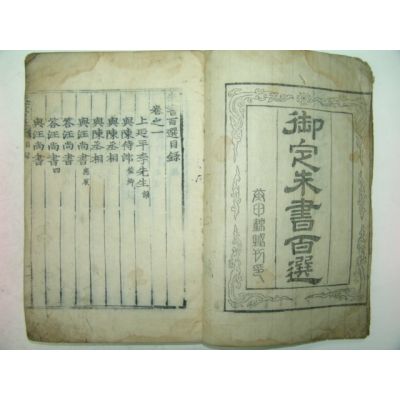 御定朱書百選
書百選目錄
卷之一
上延平李先生
與陳侍郎俊卿
與陳丞相
與陳丞相
與汪尚書應辰
答汪尚書
答汪尚書四
與汪尚書